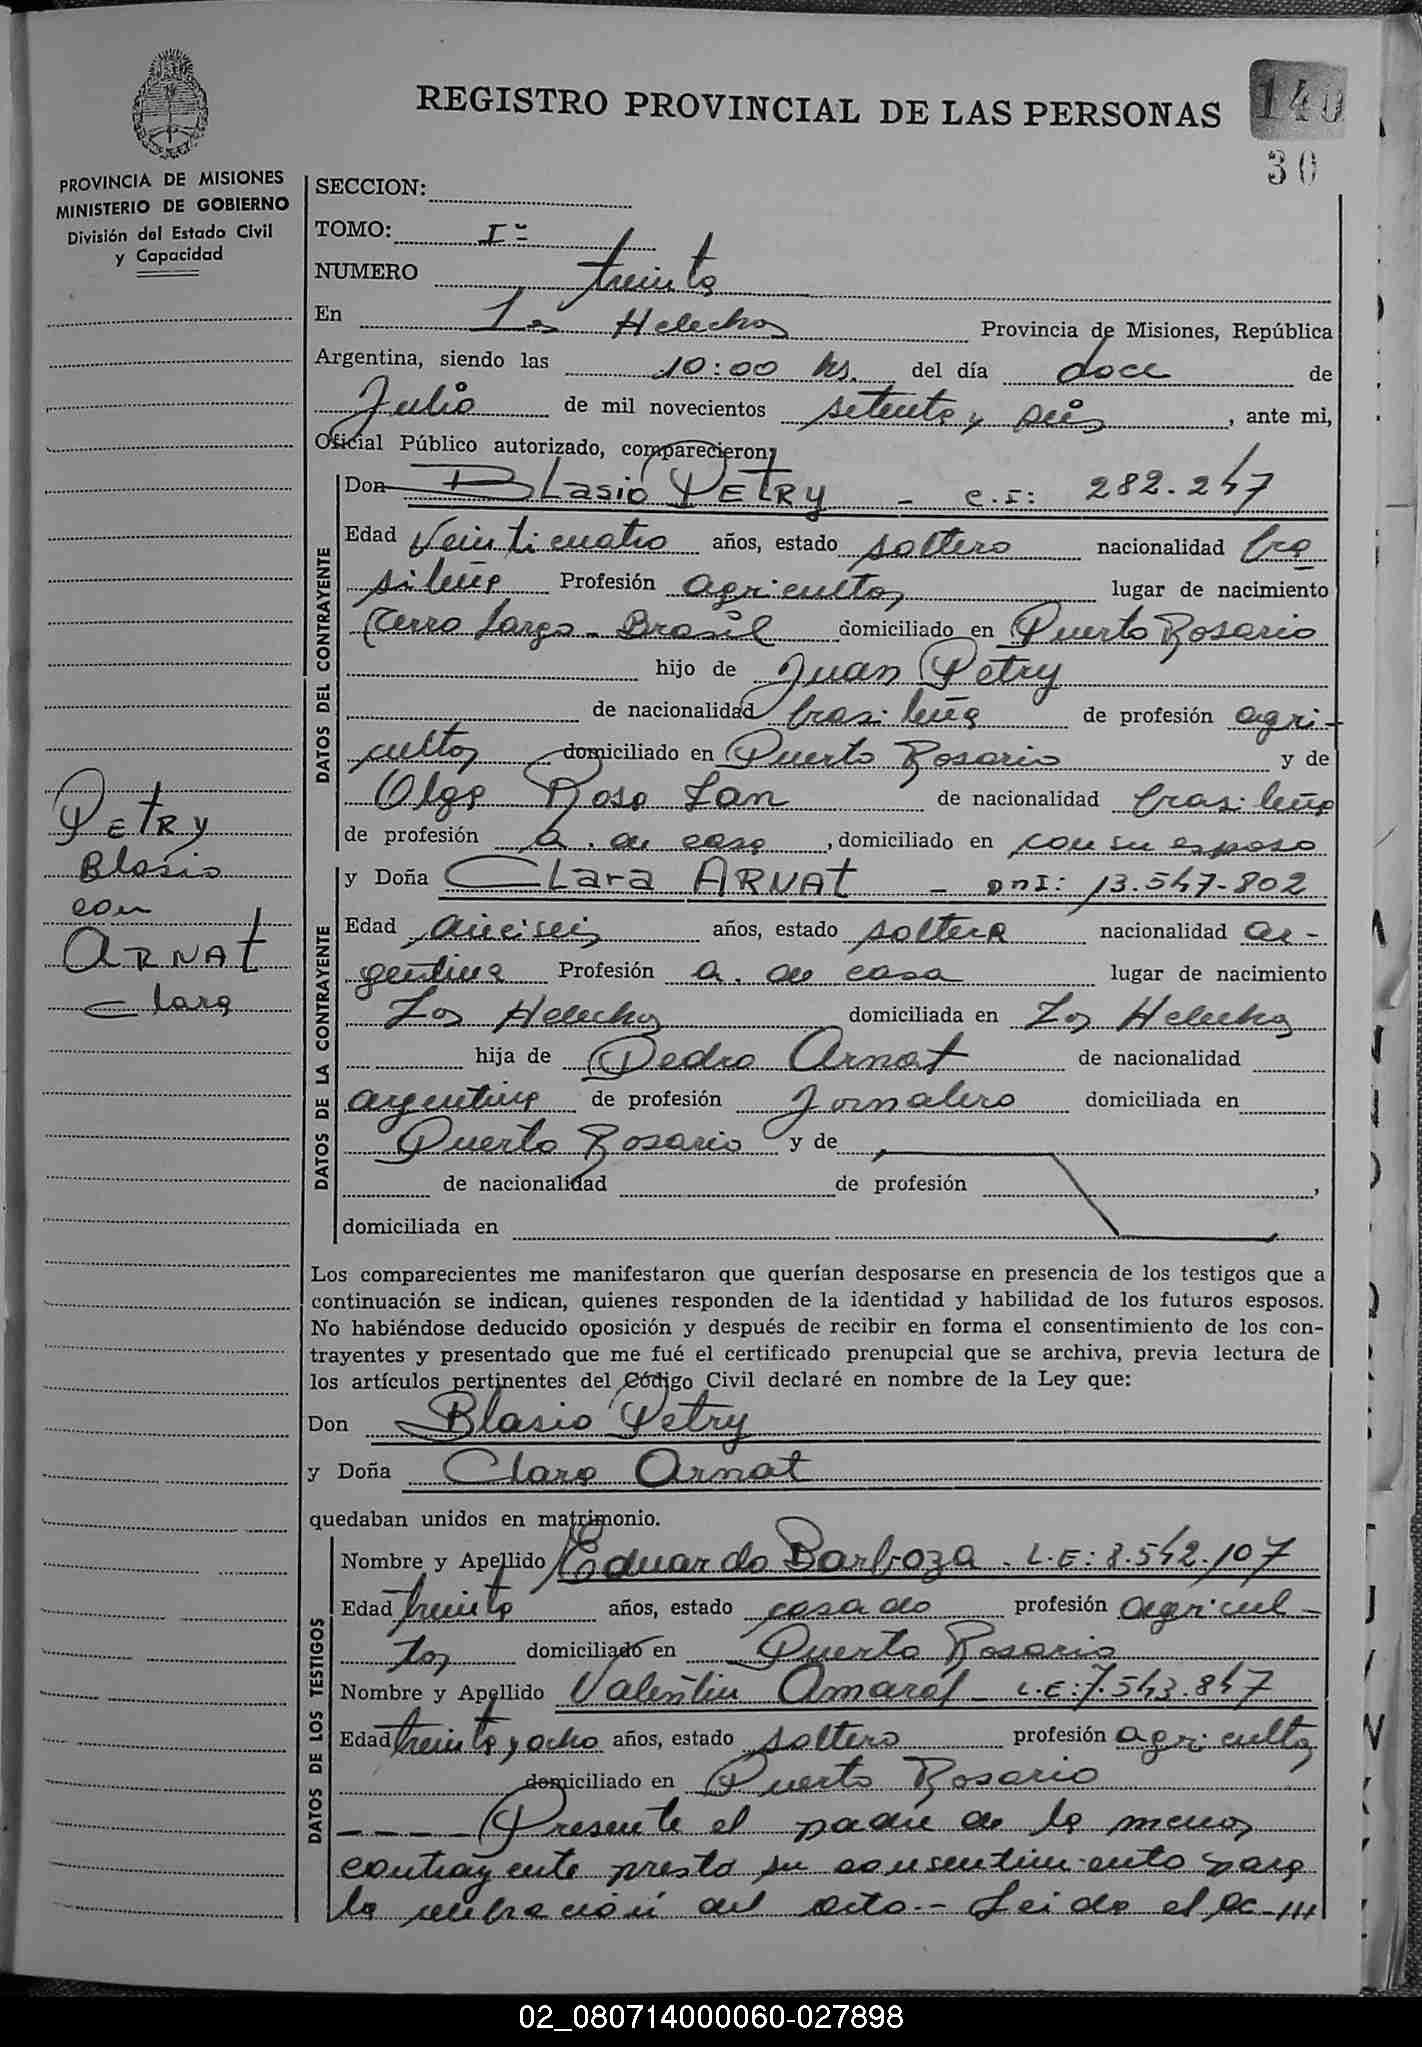 REGISTRO PROVINCIAL DE LAS PERSONAS
140
30
PROVINCIA DE MISIONES
MINISTERIO DE GOBIERNO
División del Estado Civil
y Capacidad
SECCION:
TOMO: Iº
NUMERO treinta
En Los Helechos Provincia de Misiones, República
Argentina, siendo las 10:00 hs. del día doce de
Julio de mil novecientos setenta y seis, ante mi,
Oficial Público autorizado, comparecieron:
DATOS DEL CONTRAYENTE
Don BLasio PETRY - C.I: 282.247
Edad Veinticuatro años, estado soltero nacionalidad bra
sileña Profesión agricultor lugar de nacimiento
Cerro Largo - Brasil domiciliado en Puerto Rosario
hijo de Juan Petry
de nacionalidad brasileña de profesión agri-
cultor domiciliado en Puerto Rosario y de
Olga Rosa Lan de nacionalidad brasileña
de profesión a. de casa, domiciliado en con su esposo
DATOS DE LA CONTRAYENTE
y Doña CLara ARNAt - DNI: 13.547-802
Edad dieciseis años, estado soltera nacionalidad ar-
gentina Profesión a. de casa lugar de nacimiento
Los Helechos domiciliada en Los Helechos
hija de Pedro Arnat de nacionalidad
argentina de profesión Jornalero domiciliada en
Puerto Rosario y de
de nacionalidad de profesión ,
domiciliada en
PETRY
Blasio
con
ARNAt
Clara
Los comparecientes me manifestaron que querían desposarse en presencia de los testigos que a
continuación se indican, quienes responden de la identidad y habilidad de los futuros esposos.
No habiéndose deducido oposición y después de recibir en forma el consentimiento de los con-
trayentes y presentado que me fué el certificado prenupcial que se archiva, previa lectura de
los artículos pertinentes del Código Civil declaré en nombre de la Ley que:
Don Blasio Petry
y Doña Clara Arnat
quedaban unidos en matrimonio.
DATOS DE LOS TESTIGOS
Nombre y Apellido Eduardo Barboza - L.E: 8.542.107
Edad treinta años, estado casado profesión agricul-
tor domiciliado en Puerto Rosario
Nombre y Apellido Valentin Amaral - L.E: 7.543.847
Edad treinta y ocho años, estado soltero profesión agricultor
domiciliado en Puerto Rosario
---- Presente el padre de la menor
contrayente presta su consentimiento para
la celebración del acto.- Leida el ac-///
02_080714000060-027898